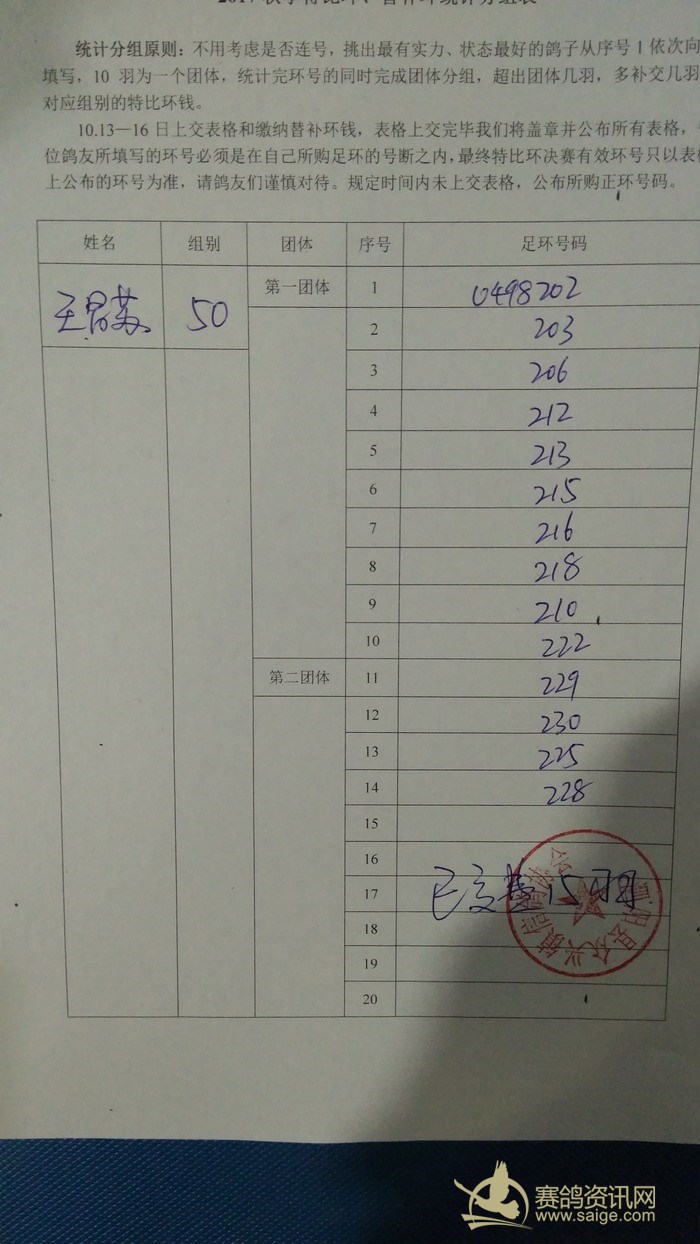 2017秋季特比环、替补环统计分组表
统计分组原则：不用考虑是否连号，挑出最有实力、状态最好的鸽子从序号1依次向
填写，10 羽为一个团体，统计完环号的同时完成团体分组，超出团体几羽，多补交几羽
对应组别的特比环钱。
10.13—16 日上交表格和缴纳替补环钱，表格上交完毕我们将盖章并公布所有表格，
位鸽友所填写的环号必须是在自己所购足环的号断之内，最终特比环决赛有效环号只以表格
上公布的环号为准，请鸽友们谨慎对待。规定时间内未上交表格，公布所购正环号码。
姓名 组别 团体 序号 足环号码
50 第一团体 1 0498202
2 203
3 206
4 212
5 213
6 215
7 216
8 218
9 210
10 222
第二团体 11 229
12 230
13 225
14 228
15
16
17 已交
18
19
20
赛鸽资讯网
www.saige.com